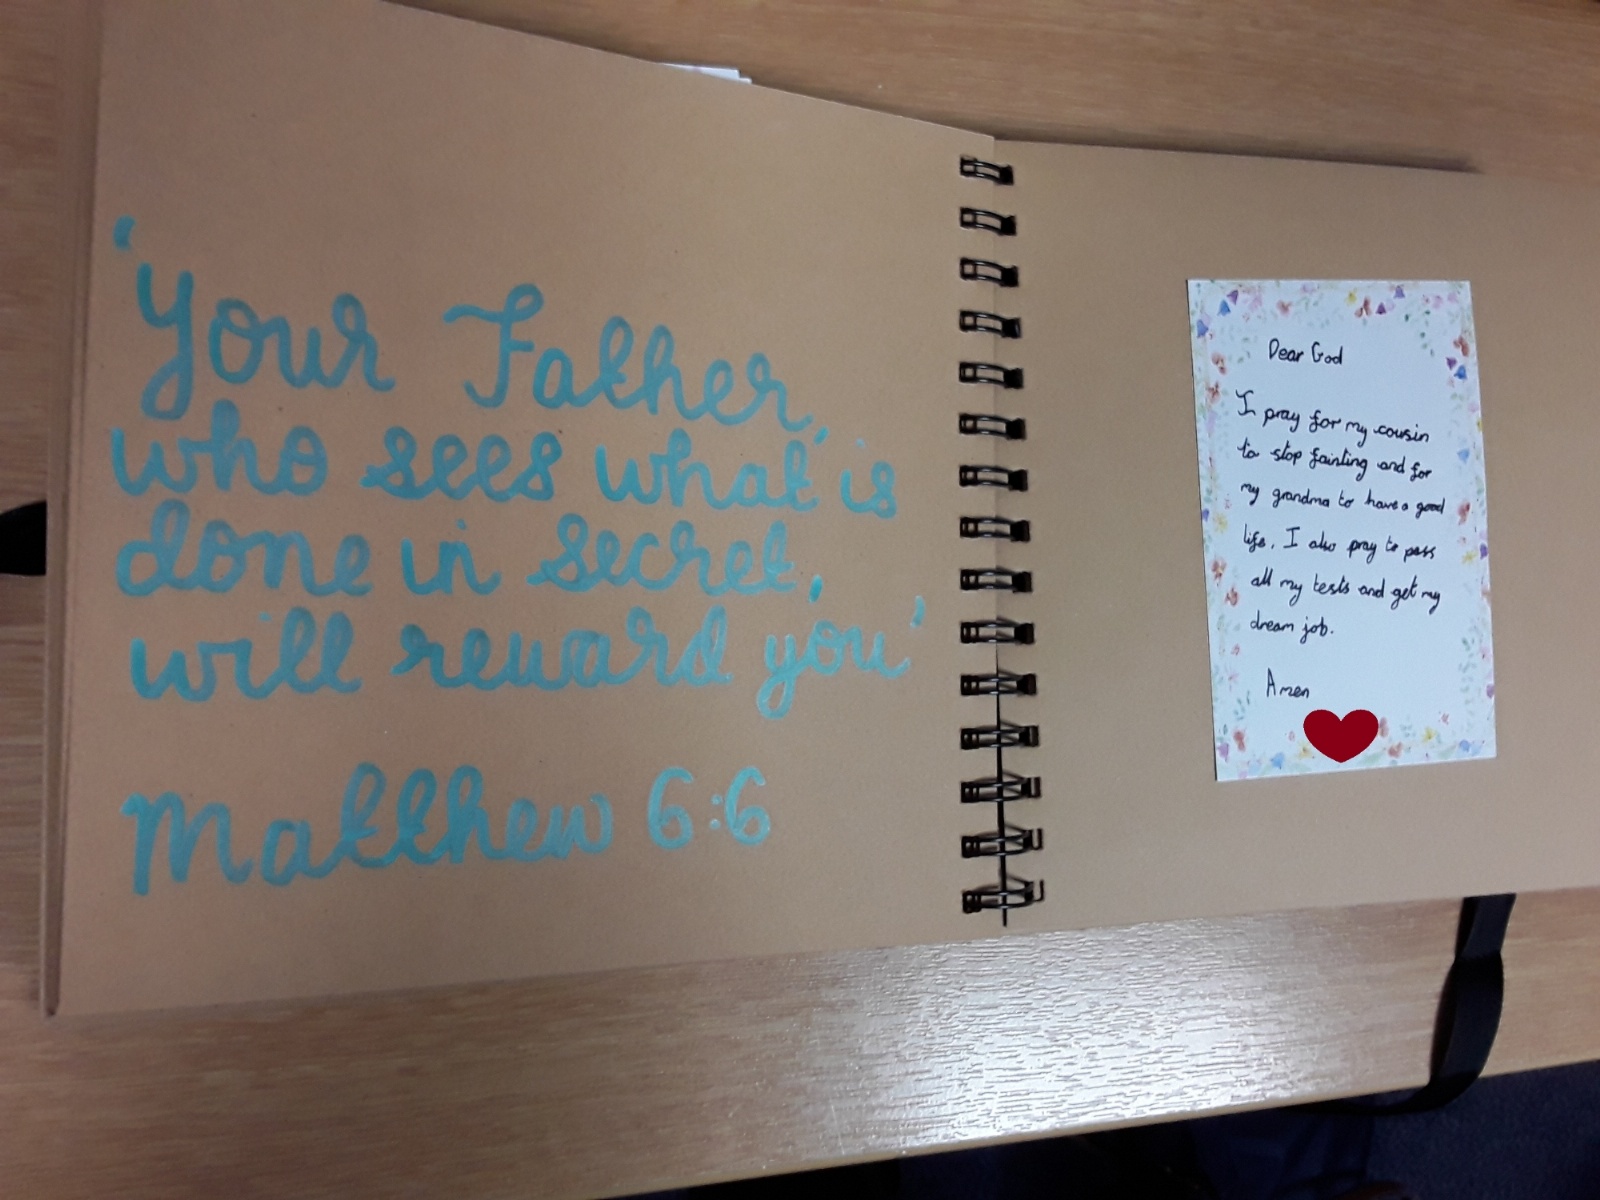 'Your Father,
who sees what is
done in secret,
will reward you'
Matthew 6:6
Dear God
I pray for my cousin
to stop fainting and for
my grandma to have a good
life. I also pray to pass
all my tests and get my
dream job.
Amen